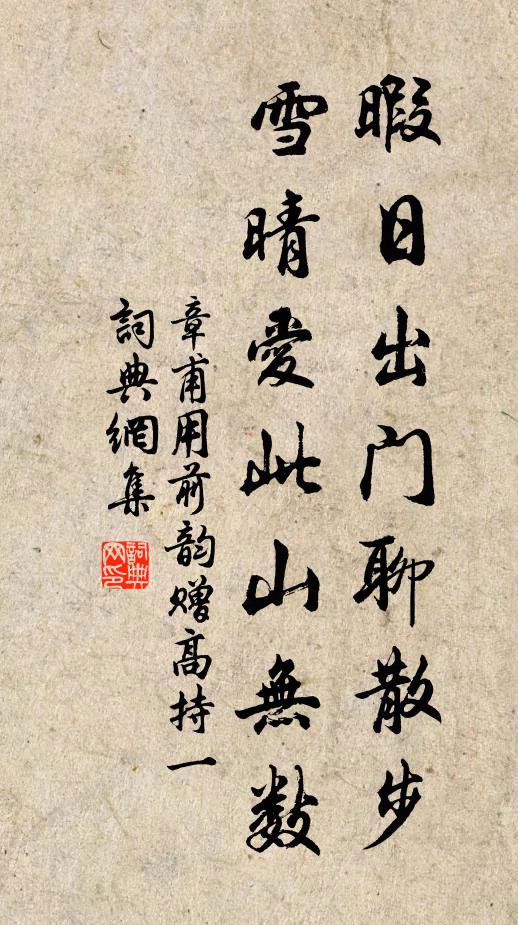 暇日出門聊散步
雪晴愛此山無數
章甫用前韵贈高持一
詞典網集
詞典
网印